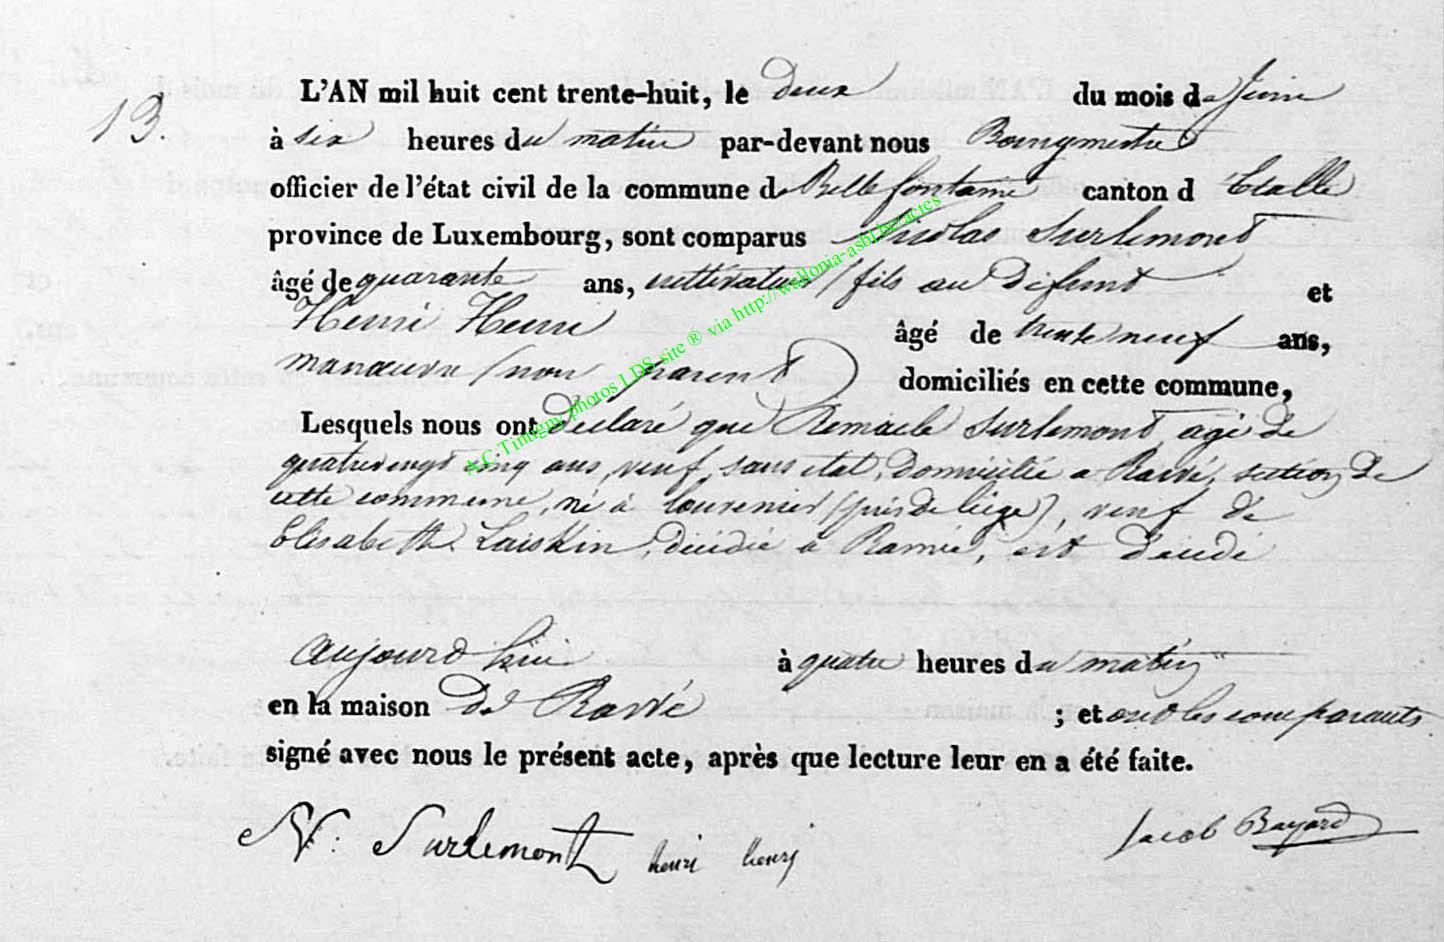 13.
L'AN mil huit cent trente-huit, le deux du mois de Juin
à six heures du matin par-devant nous Bourgmestre
officier de l'état civil de la commune de Bellefontaine canton d'Etalle
province de Luxembourg, sont comparus Nicolas Surlemont
âgé de quarante ans, cultivateur (fils au défunt et
Henri Henri âgé de trente neuf ans,
manœuvre (non parent) domiciliés en cette commune,
Lesquels nous ont déclaré que Remacle Surlemont, agé de
quatrevingt cinq ans, veuf, sans etat, domicilié a Rawé, section de
cette commune, né à Louveniez (près de liége), veuf de
Elisabeth Laiskin, décédée à Rawé, est décédé
aujourd'hui à quatre heures du matin
en la maison de Rawé ; et ont les comparants
signé avec nous le présent acte, après que lecture leur en a été faite.
N. Surlemont henri henri Jacob Bayard
A.C Tintigny photos LDS site ® via http://wallonia-asbl.be/actes